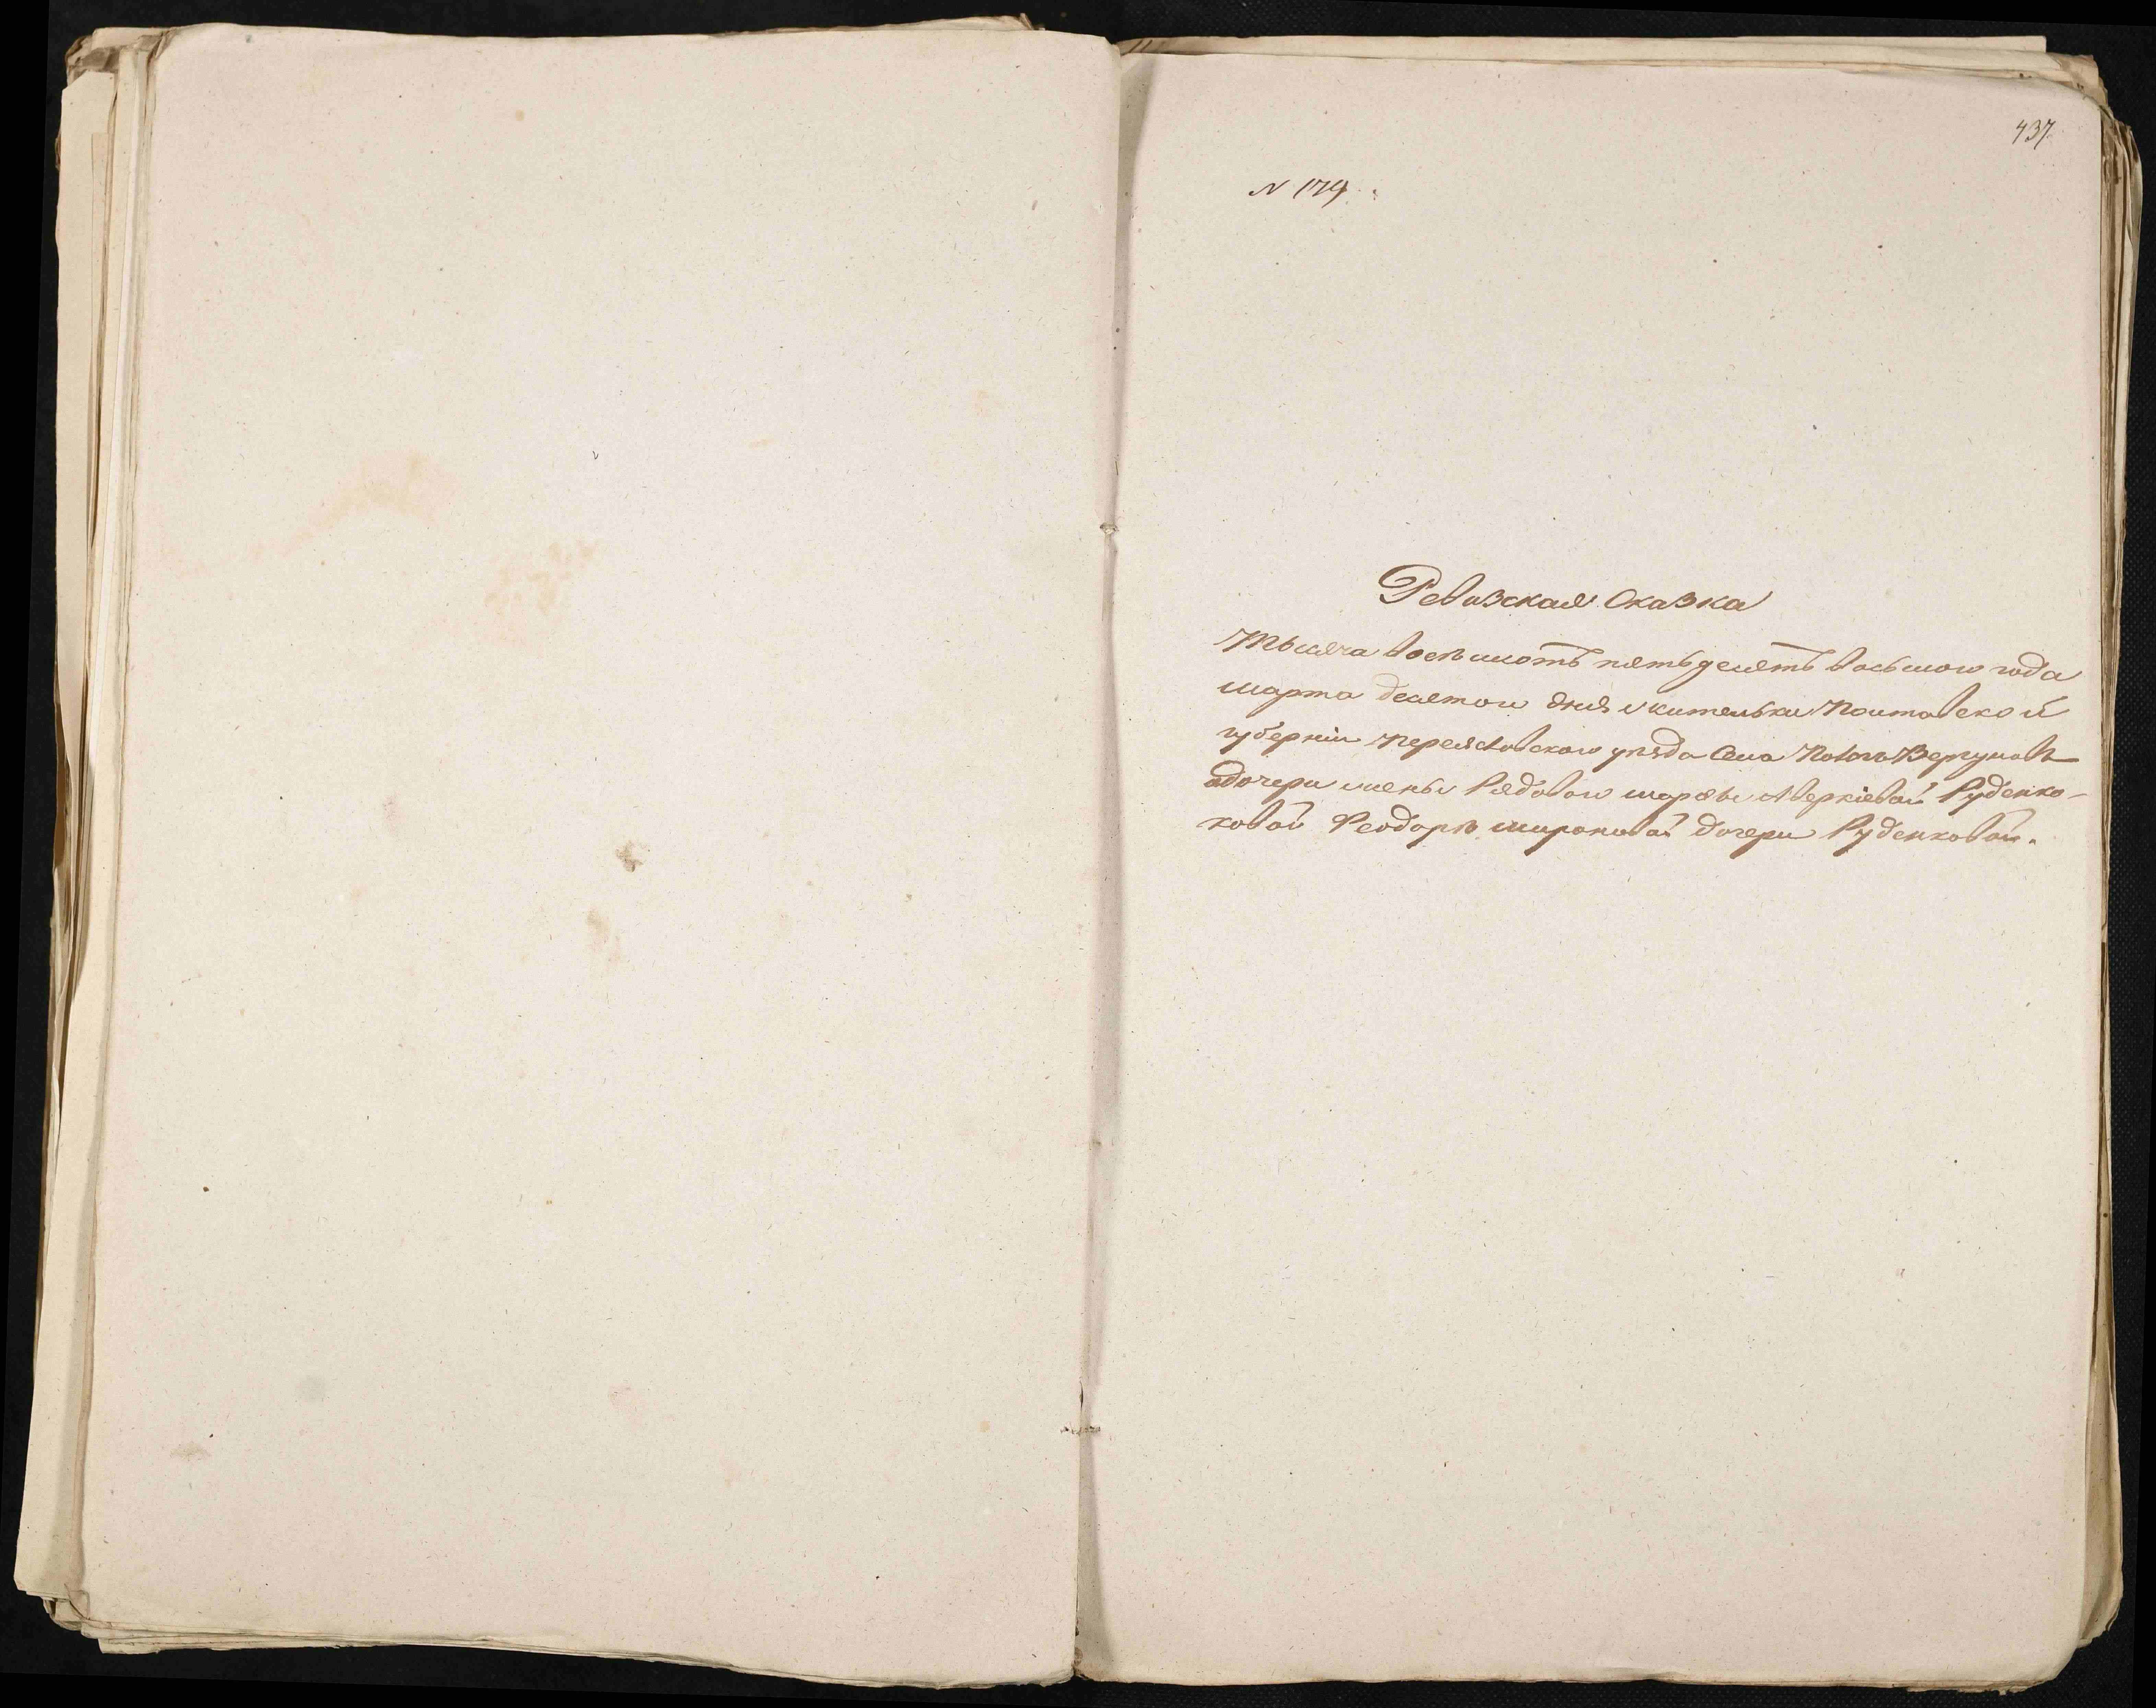 437
N 174.
Ревизская Сказка
Тысяча восемьсотъ пятьдесятъ восьмого года
марта десятого дня жительки Полтавской
губерніи Переяславского уѣзда Села
дочери жены Рядового марфы Аверкіевой Руденко-
ковой Феодоры мироновой дочери Руденковой.